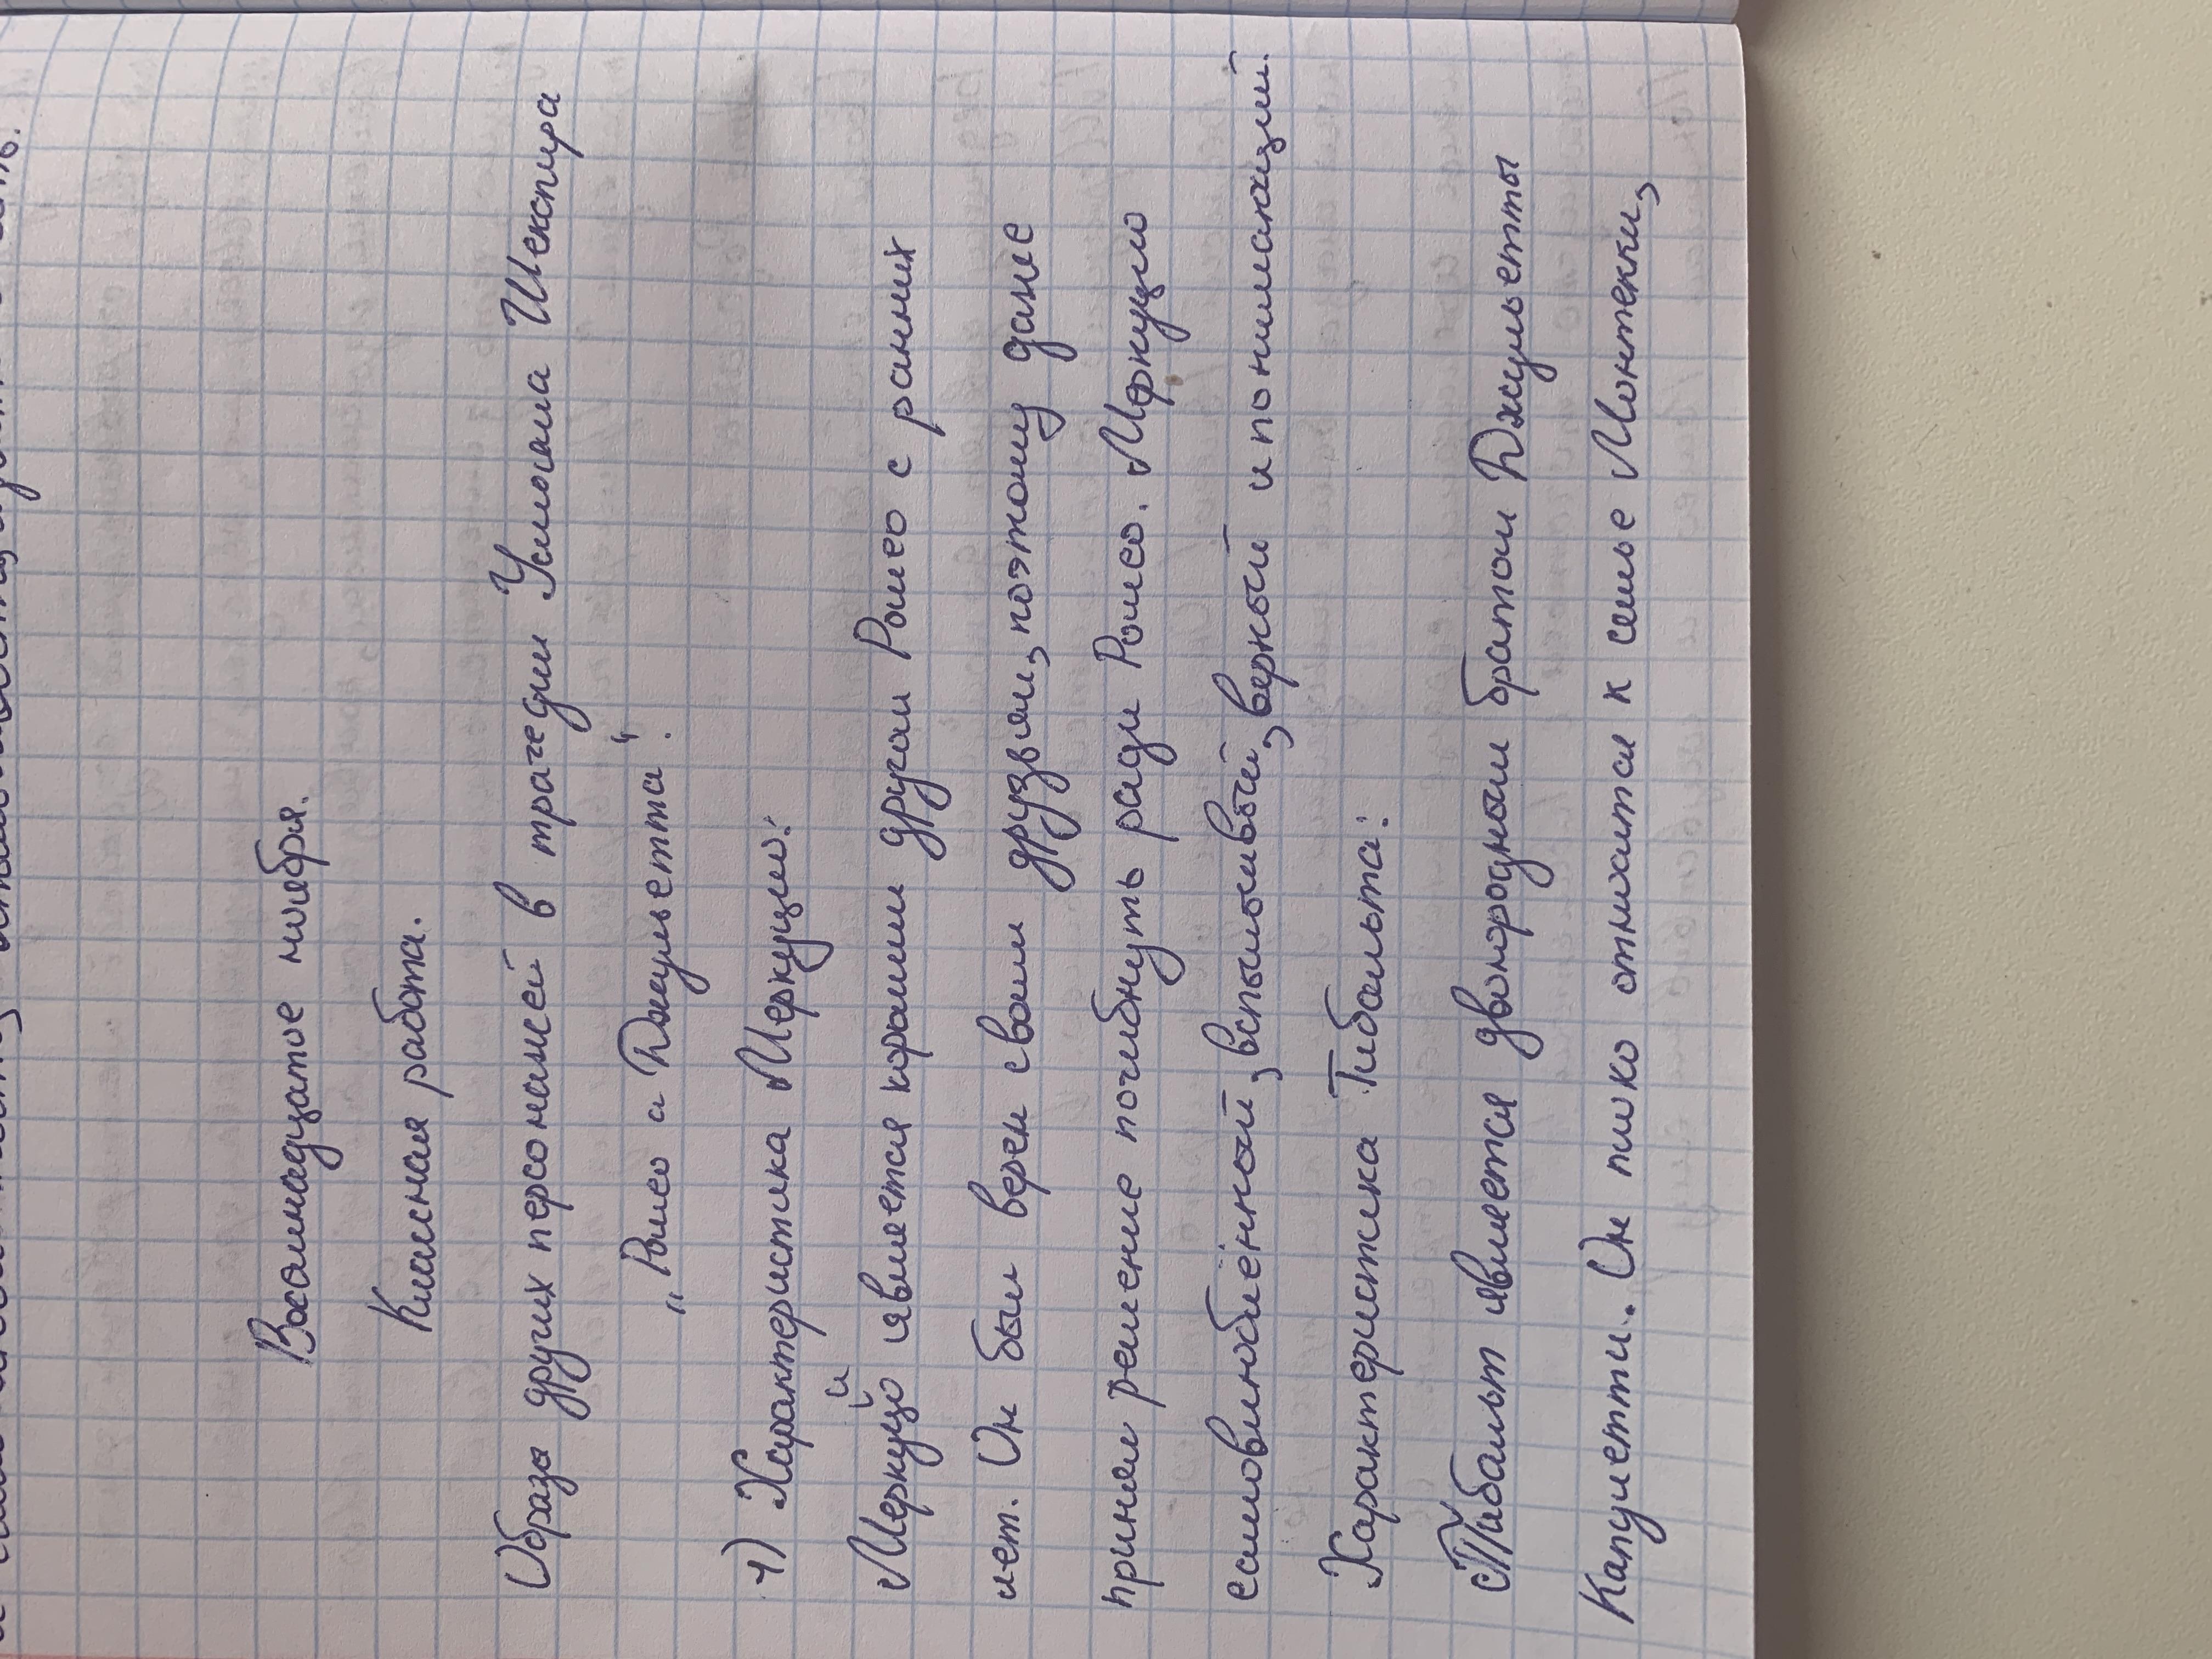 Восемнадцатое ноября.
Классная работа.
Образы других персонажей в трагедии Уильяма Шекспира
„Ромео и Джульетта".
1) Характеристика Меркуцио:
Меркуцио является хорошим другом Ромео с ранних
лет. Он был верен своим друзьям, поэтому даже
принял решение погибнуть ради Ромео. Меркуцио
самовлюблённый, вспыльчивый, верный и понимающий.
Характеристика Тибальта:
Тибальт является двоюродным братом Джульетты
Капулетти. Он плохо относится к семье Монтекки,